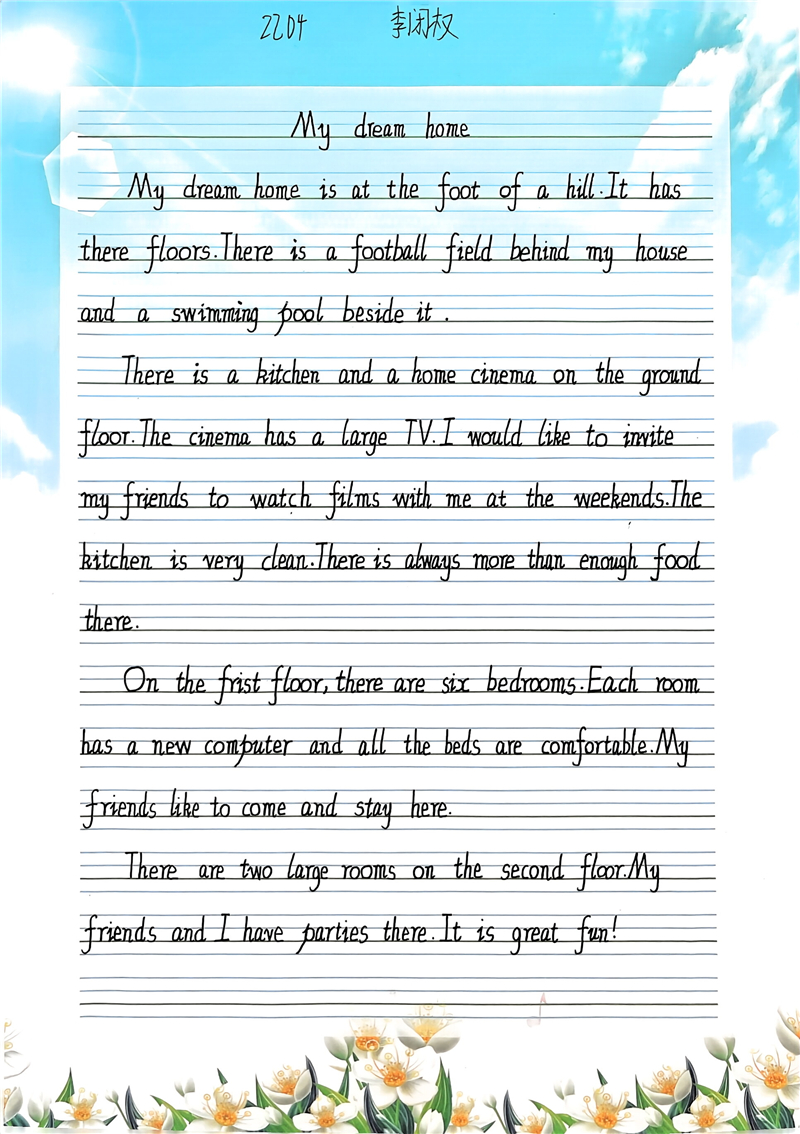 2204 李闭权
My dream home
My dream home is at the foot of a hill.It has
there floors.There is a football field behind my house
and a swimming pool beside it .
There is a kitchen and a home cinema on the ground
floor.The cinema has a large TV.I would like to invite
my friends to watch films with me at the weekends.The
kitchen is very clean.There is always more than enough food
there.
On the frist floor, there are six bedrooms.Each room
has a new computer and all the beds are comfortable.My
friends like to come and stay here.
There are two large rooms on the second floor.My
friends and I have parties there.It is great fun!